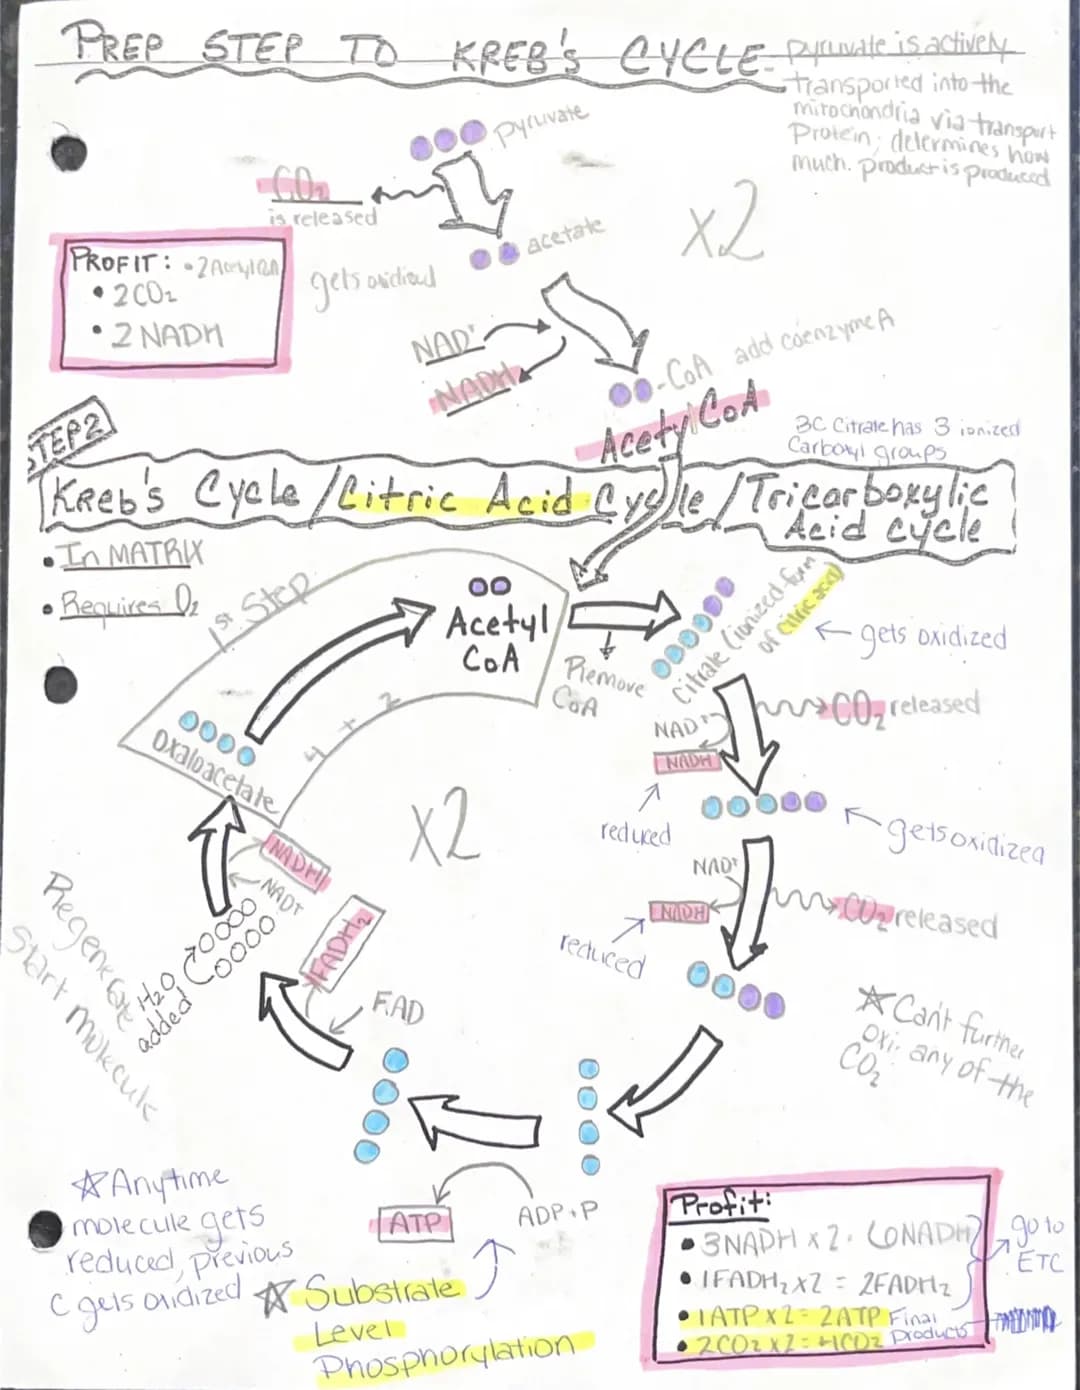 PREP STEP TO KREB's CYCLE-
pyruvate is actively
transported into the
mitochondria via transport
Protein; determines how
much. product is produced
pyruvate
CO2
is released
x2
acetate
gets oxidized
PROFIT: •2AcetylCoA
• 2CO2
• 2 NADH
NAD+
NADH
-CoA add coenzyme A
Acetyl CoA
3C Citrate has 3 ionized
Carboxyl groups
STEP2
Kreb's Cycle /Citric Acid Cycle /Tricarboxylic
Acid cycle
• In MATRIX
• Requires O2
1st Step
Acetyl
CoA
Remove
CoA
Citrate (ionized form
of citric acid)
← gets oxidized
4 + 2
oxaloacetate
NAD+
NADH
CO2 released
reduced
gets oxidized
X2
NAD+
NADH
CO2 released
reduced
NADH
NAD+
FADH2
FAD
H2O
added
Regenerate
Start molecule
☆ Can't further
oxi. any of the
CO2
☆ Anytime
molecule gets
reduced, previous
C gets oxidized
ATP
ADP+P
☆ Substrate
Level
Phosphorylation
Profit:
• 3NADH x 2 · 6NADH
• 1FADH2 x2 = 2FADH2
• 1ATP x2= 2ATP Final
• 2CO2 x2 = 4CO2 Products
go to
ETC